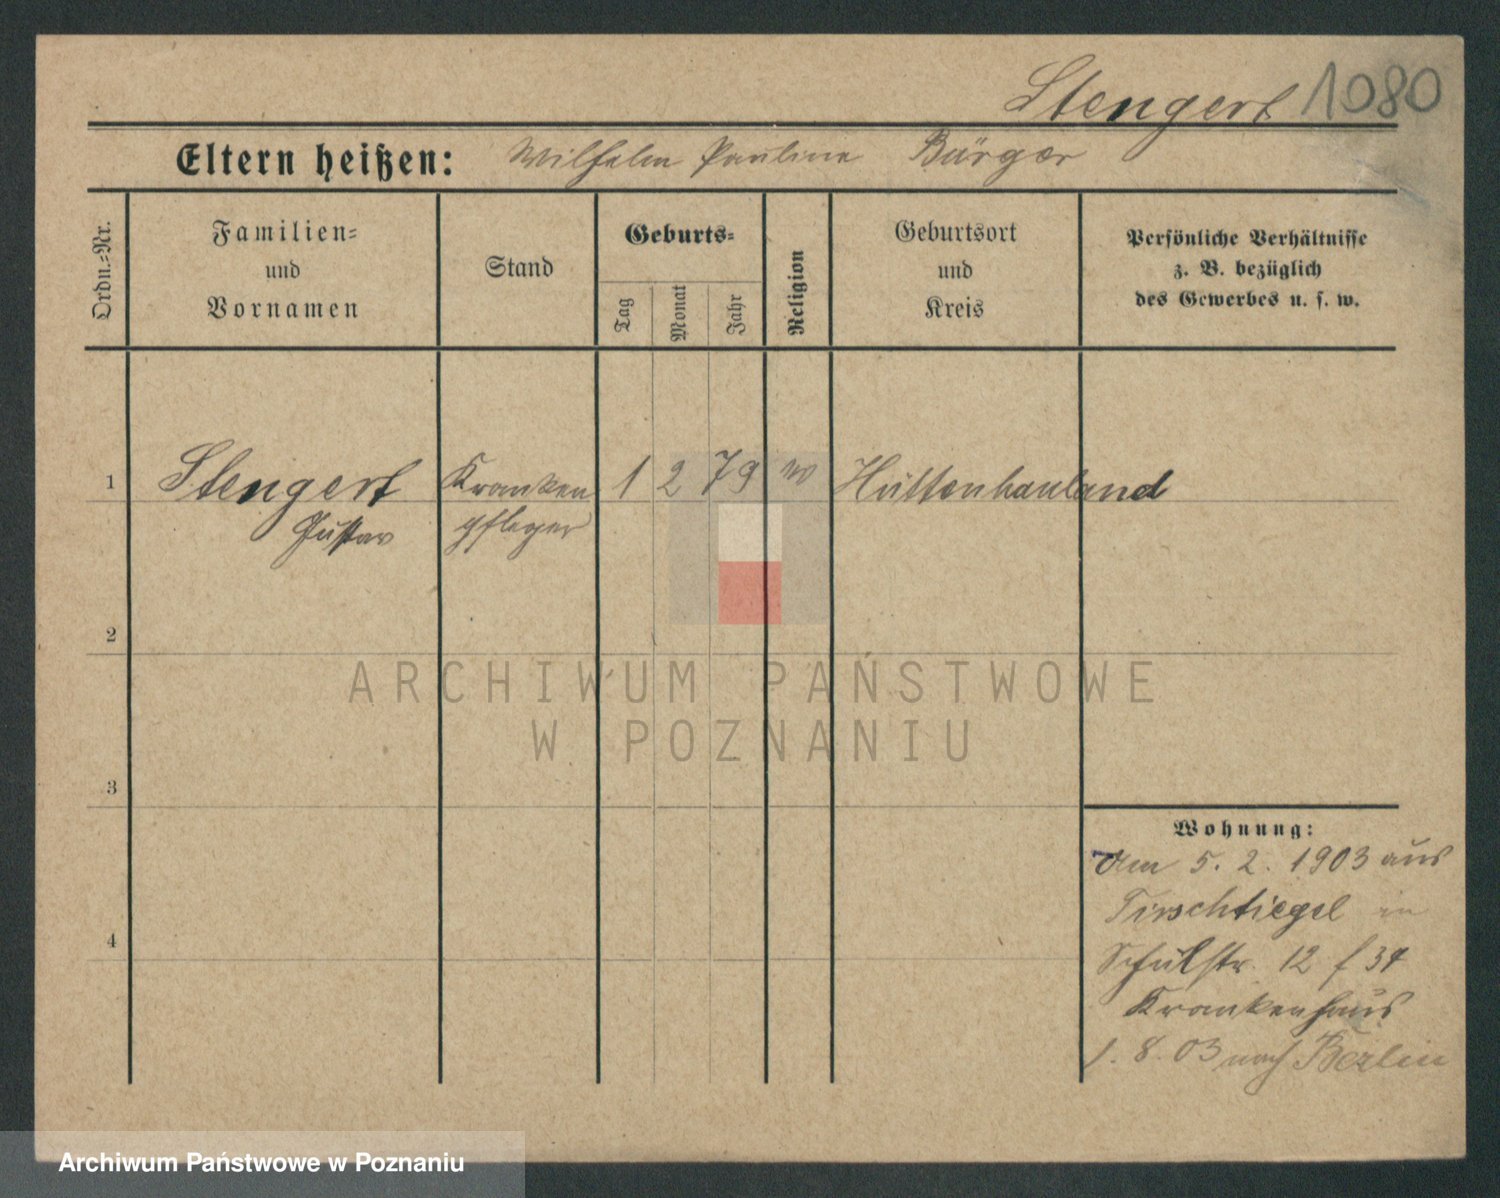 Stengert 1080
Eltern heißen: Wilhelm Pauline Bürger
Ordn.-Nr.
Familien-
und
Vornamen
Stand
Geburts-
Tag
Monat
Jahr
Religion
Geburtsort
und
Kreis
Persönliche Verhältnisse
z. B. bezüglich
des Gewerbes u. s. w.
1 Stengert Kranken 1 2 79 Hüttenhauland
Gustav pfleger
2
ARCHIWUM PAŃSTWOWE
W POZNANIU
3
Wohnung:
Am 5. 2. 1903 aus
Tirschtiegel in
4
Schulstr. 12 f 34
Krankenhaus
1. 8. 03 nach Berlin
Archiwum Państwowe w Poznaniu